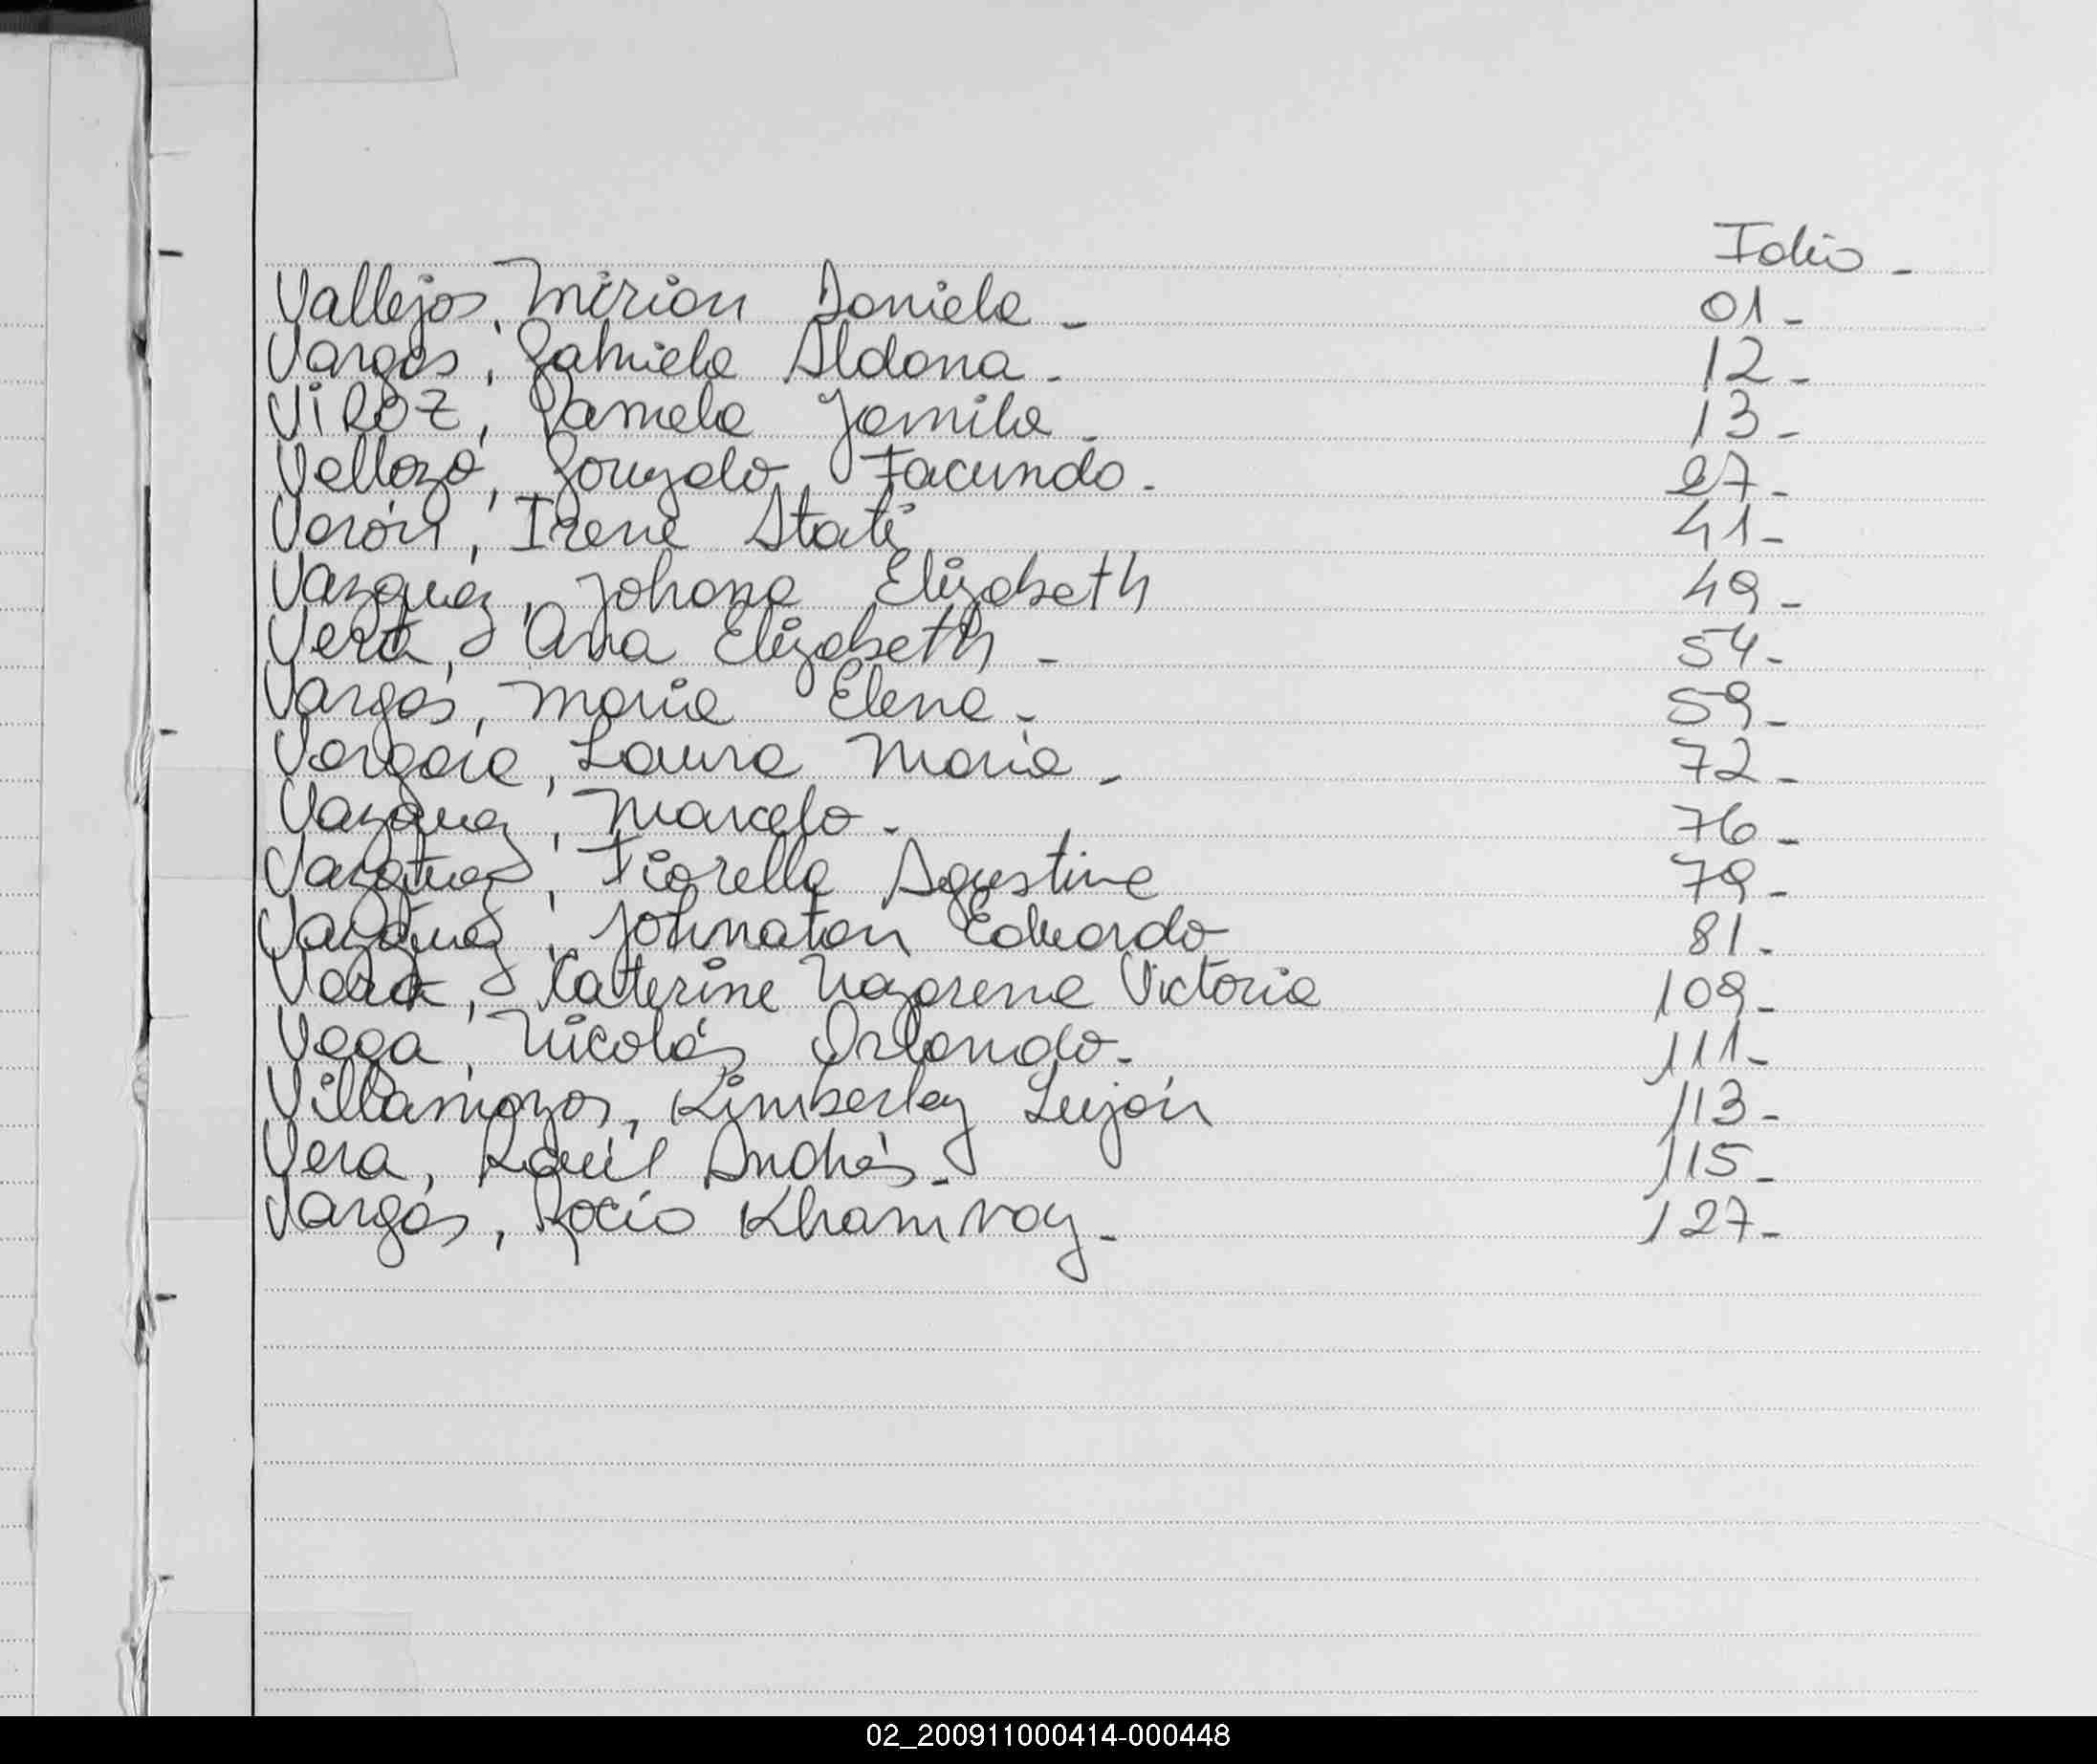 Folio -
Vallejos, Mirian Daniela - 01 -
Vargas, Gabriela Aldana - 12 -
Viroz, Pamela Jamila - 13 -
Vellozo, Gonzalo Facundo - 27 -
Varón, Irene Itatí 41 -
Vazquez, Johana Elizabeth 49 -
Vera, Ana Elizabeth - 54 -
Vargas, Maria Elena - 59 -
Vargara, Laura Maria - 72 -
Vazquez, Marcelo - 76 -
Vazquez, Fiorella Agustina 79 -
Vazquez, Johnatan Eduardo 81 -
Vera, Katterine Nazarena Victoria 109 -
Vega, Nicolás Orlando - 111 -
Villamayor, Kimberley Luján 113 -
Vera, Raúl Andrés - 115 -
Vargas, Rocío 127 -
02_200911000414-000448